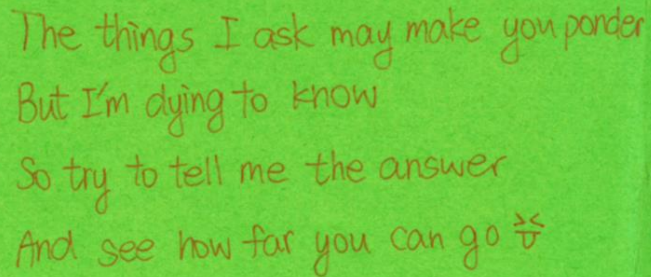 The things I ask may make you ponder
But I'm dying to know
So try to tell me the answer
And see how far you can go